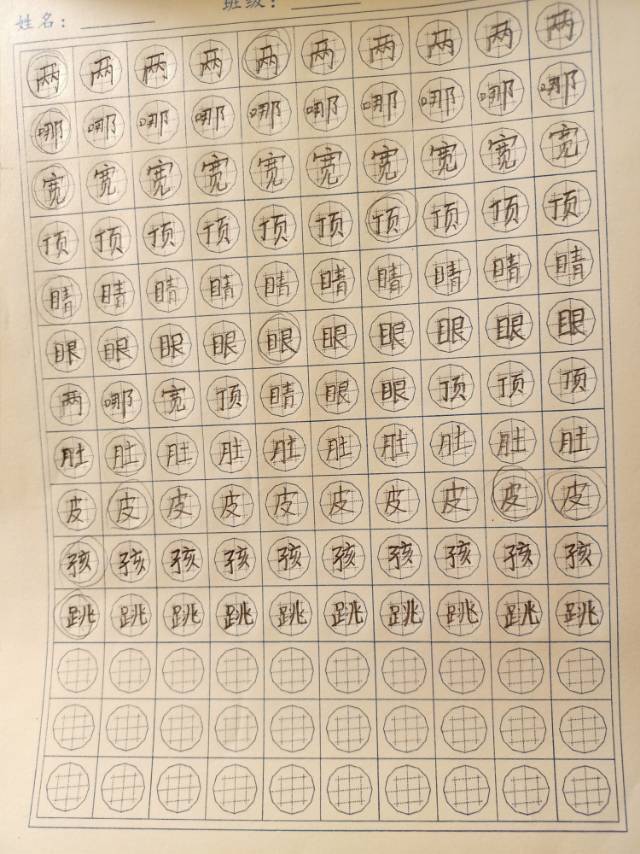 姓名： 班级：
两 两 两 两 两 两 两 两 两 两
哪 哪 哪 哪 哪 哪 哪 哪 哪 哪
宽 宽 宽 宽 宽 宽 宽 宽 宽 宽
顶 顶 顶 顶 顶 顶 顶 顶 顶 顶
睛 睛 睛 睛 睛 睛 睛 睛 睛 睛
眼 眼 眼 眼 眼 眼 眼 眼 眼 眼
两 哪 宽 顶 睛 眼 眼 顶 顶 顶
肚 肚 肚 肚 肚 肚 肚 肚 肚 肚
皮 皮 皮 皮 皮 皮 皮 皮 皮 皮
孩 孩 孩 孩 孩 孩 孩 孩 孩 孩
跳 跳 跳 跳 跳 跳 跳 跳 跳 跳